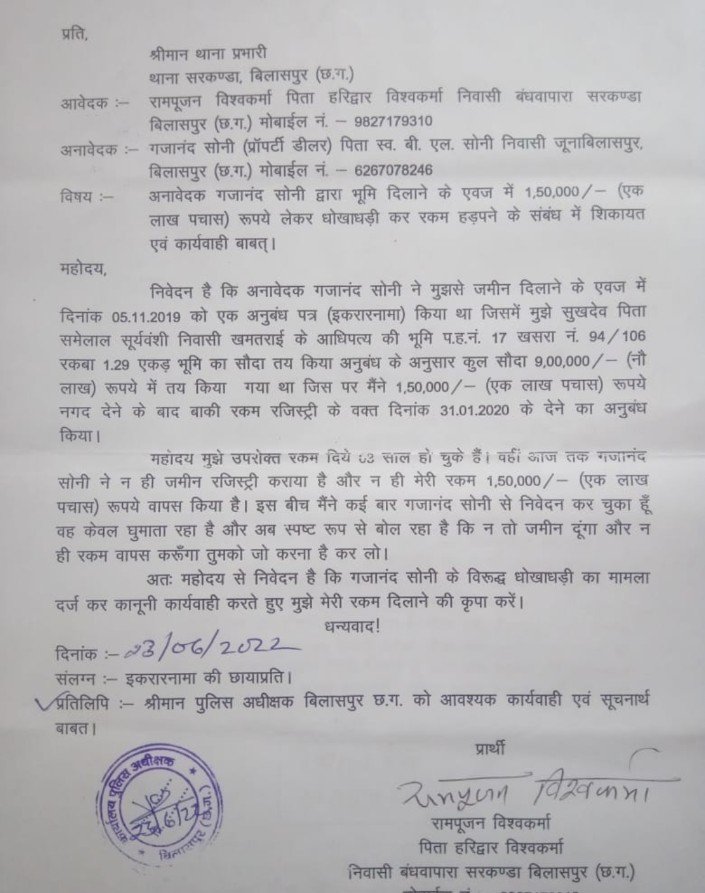 प्रति,
श्रीमान थाना प्रभारी
थाना सरकण्डा, बिलासपुर (छ.ग.)
आवेदक :– रामपूजन विश्वकर्मा पिता हरिद्वार विश्वकर्मा निवासी बंधवापारा सरकण्डा
बिलासपुर (छ.ग.) मोबाईल नं. – 9827179310
अनावेदक :– गजानंद सोनी (प्रॉपर्टी डीलर) पिता स्व. बी. एल. सोनी निवासी जूनाबिलासपुर,
बिलासपुर (छ.ग.) मोबाईल नं. – 6267078246
विषय :– अनावेदक गजानंद सोनी द्वारा भूमि दिलाने के एवज में 1,50,000/– (एक
लाख पचास) रूपये लेकर धोखाधड़ी कर रकम हड़पने के संबंध में शिकायत
एवं कार्यवाही बाबत्।
महोदय,
निवेदन है कि अनावेदक गजानंद सोनी ने मुझसे जमीन दिलाने के एवज में
दिनांक 05.11.2019 को एक अनुबंध पत्र (इकरारनामा) किया था जिसमें मुझे सुखदेव पिता
समेलाल सूर्यवंशी निवासी खमतराई के आधिपत्य की भूमि प.ह.नं. 17 खसरा नं. 94/106
रकबा 1.29 एकड़ भूमि का सौदा तय किया अनुबंध के अनुसार कुल सौदा 9,00,000/– (नौ
लाख) रूपये में तय किया गया था जिस पर मैंने 1,50,000/– (एक लाख पचास) रूपये
नगद देने के बाद बाकी रकम रजिस्ट्री के वक्त दिनांक 31.01.2020 के देने का अनुबंध
किया।
महोदय मुझे उपरोक्त रकम दिये 03 साल हो चुके हैं। वहीं आज तक गजानंद
सोनी ने न ही जमीन रजिस्ट्री कराया है और न ही मेरी रकम 1,50,000/– (एक लाख
पचास) रूपये वापस किया है। इस बीच मैंने कई बार गजानंद सोनी से निवेदन कर चुका हूँ
वह केवल घुमाता रहा है और अब स्पष्ट रूप से बोल रहा है कि न तो जमीन दूंगा और न
ही रकम वापस करूँगा तुमको जो करना है कर लो।
अतः महोदय से निवेदन है कि गजानंद सोनी के विरूद्ध धोखाधड़ी का मामला
दर्ज कर कानूनी कार्यवाही करते हुए मुझे मेरी रकम दिलाने की कृपा करें।
धन्यवाद!
दिनांक :– 23/06/2022
संलग्न :– इकरारनामा की छायाप्रति।
प्रतिलिपि :– श्रीमान पुलिस अधीक्षक बिलासपुर छ.ग. को आवश्यक कार्यवाही एवं सूचनार्थ
बाबत।
कार्यालय पुलिस अधीक्षक
23/6/22
बिलासपुर (छ.ग.)
प्रार्थी
रामपूजन विश्वकर्मा
रामपूजन विश्वकर्मा
पिता हरिद्वार विश्वकर्मा
निवासी बंधवापारा सरकण्डा बिलासपुर (छ.ग.)